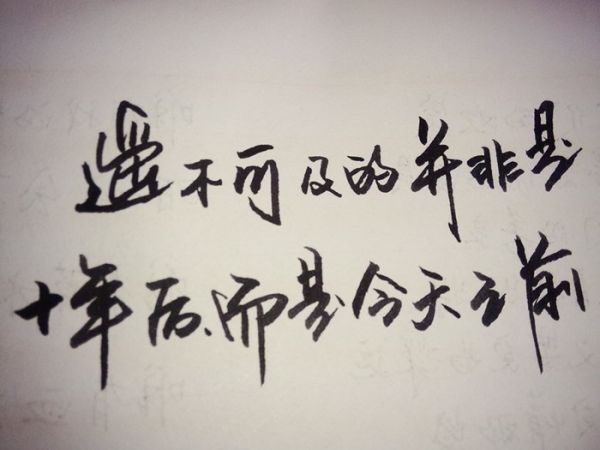 遥不可及的并非是
十年后、而是今天之前